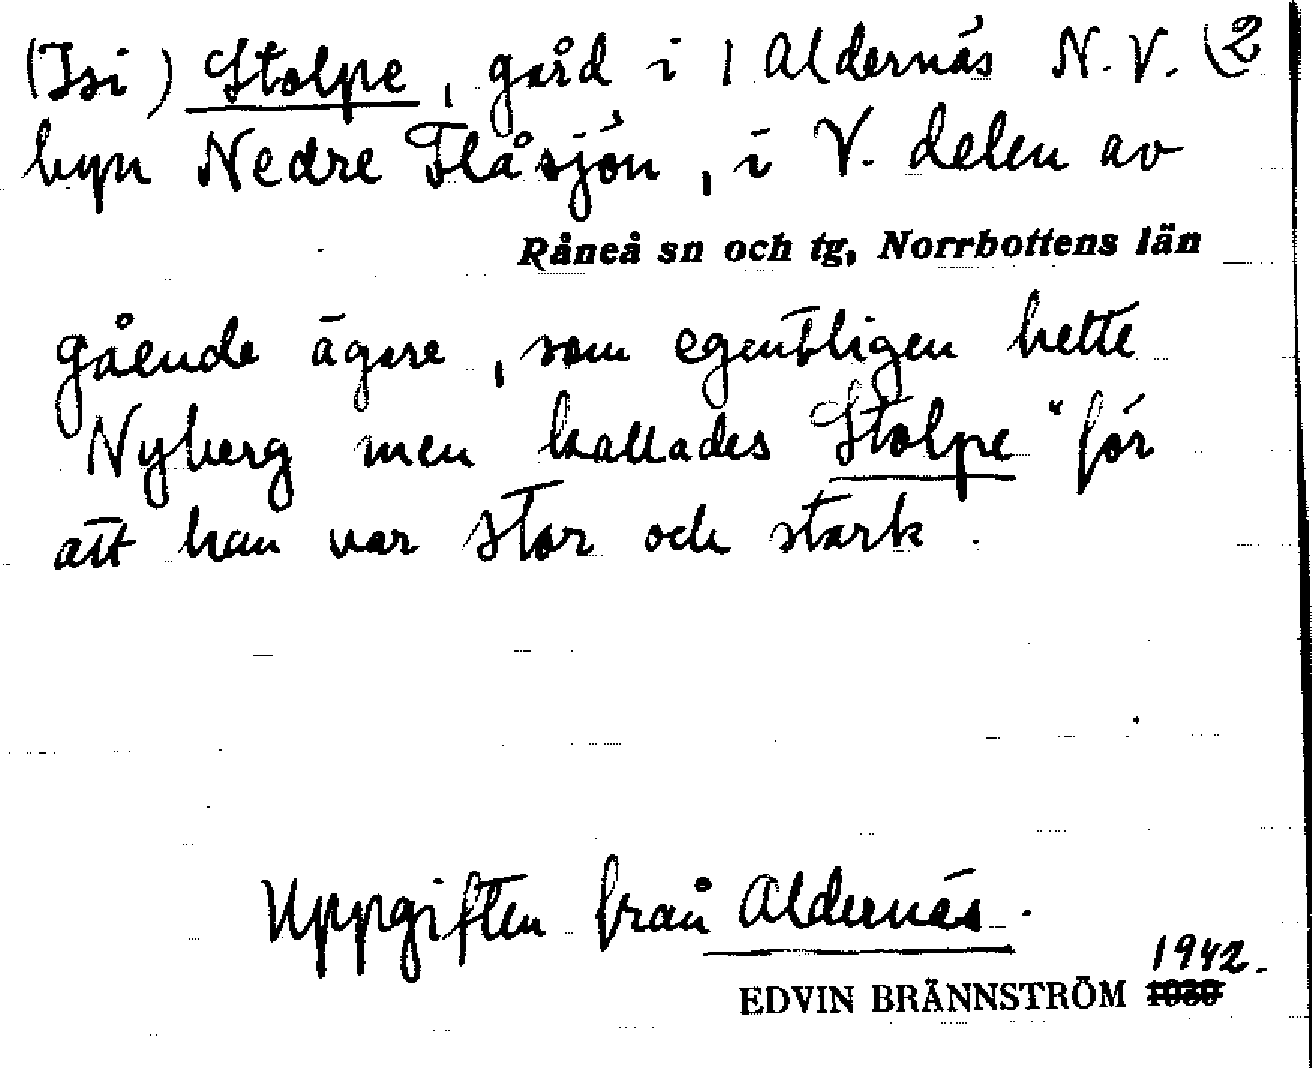 (Isi) Stolpe, gård i | Aldernäs N.V. (2
byn Nedre Flåsjön, i V. delen av
Råneå sn och tg, Norrbottens län
gående ägare, som egentligen hette
Nyberg men kallades Stolpe "för
att han var stor och stark.
Uppgiften från Aldernäs.
1942.
EDVIN BRÄNNSTRÖM 1939